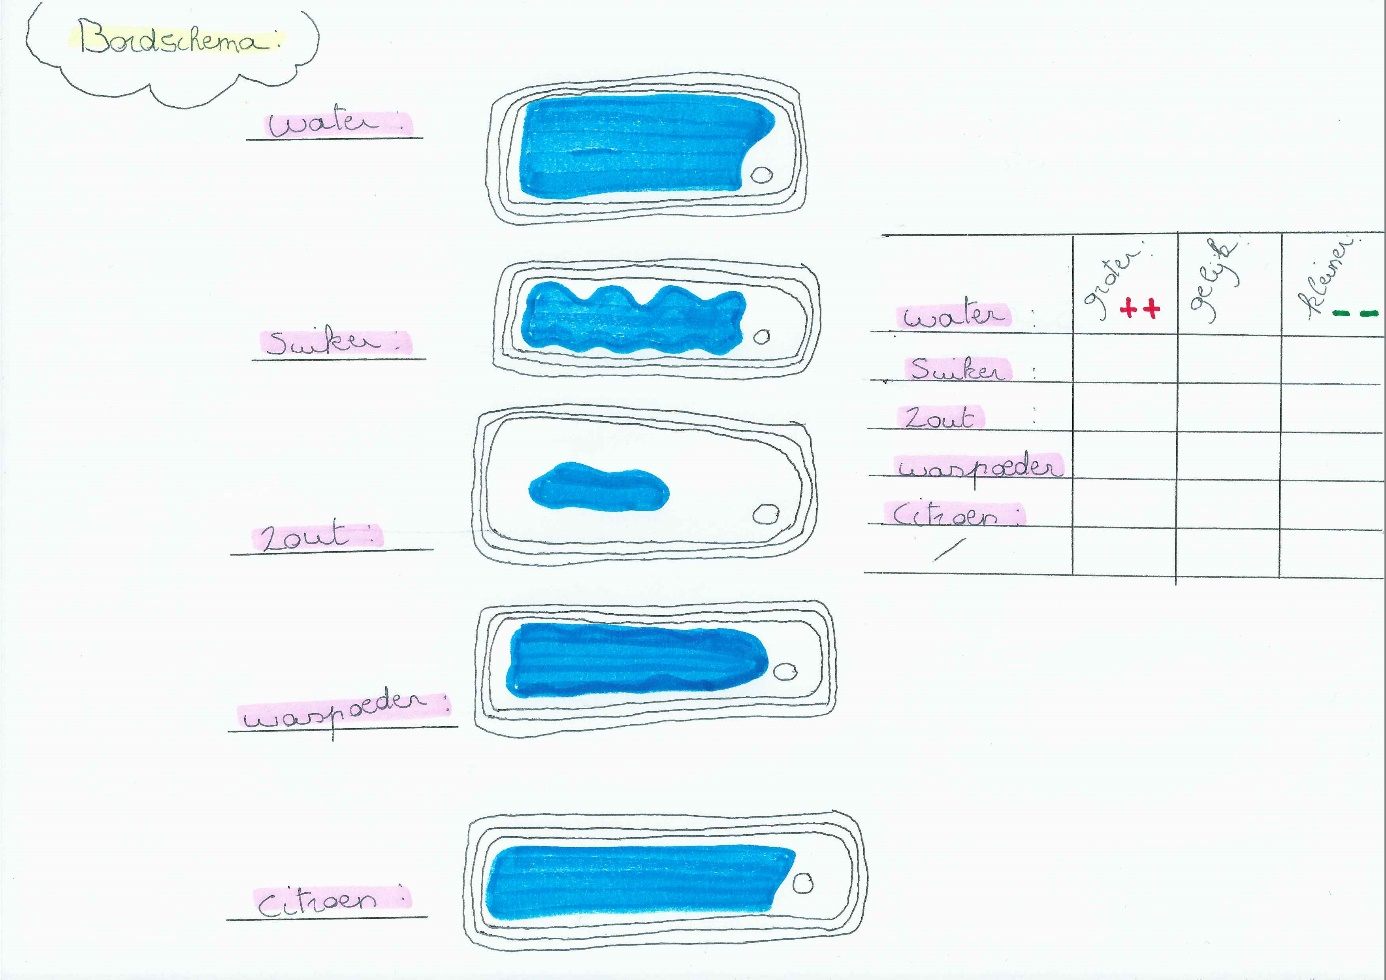 Bordschema:
water :
Suiker :
Zout :
waspoeder :
Citroen :
groter: ++
gelijk:
kleiner: --
water :
Suiker :
Zout :
waspoeder
Citroen :
/